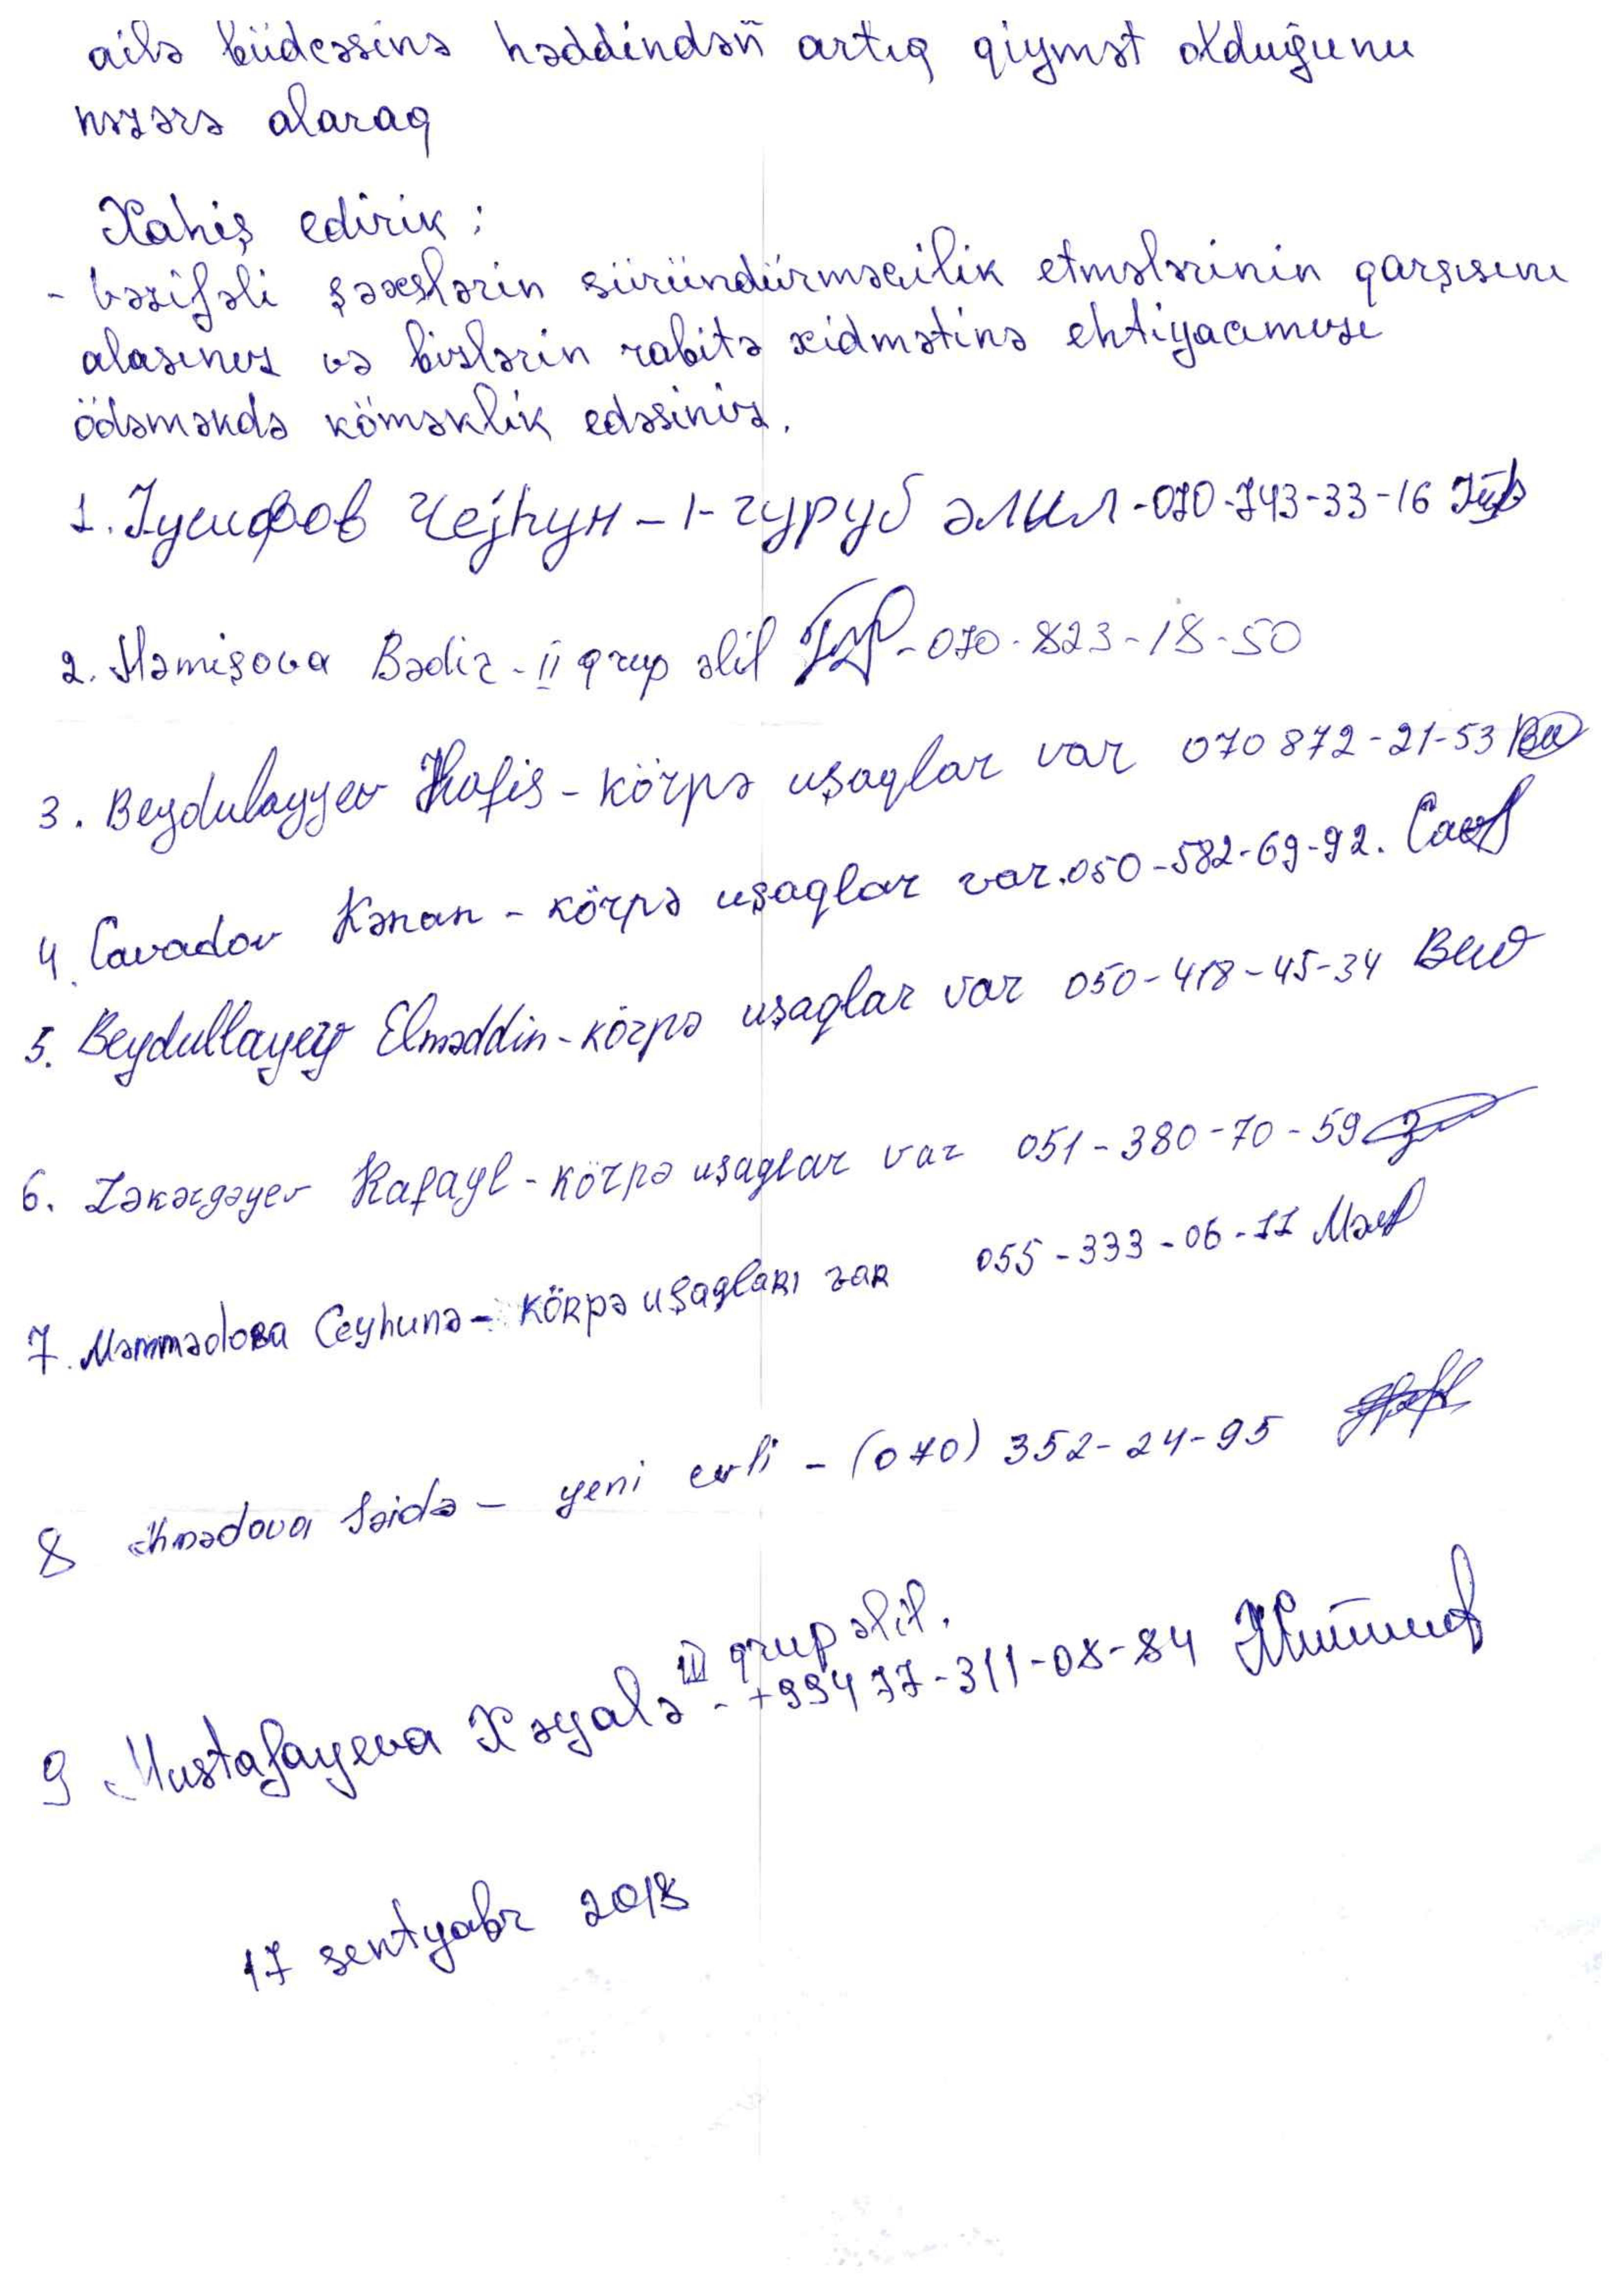 ailə büdcəsinə həddindən artıq qiymət olduğunu
nəzərə alaraq
Xahiş edirik:
- vəzifəli şəxslərin süründürməçilik etmələrinin qarşısını
alasınız və bizlərin rabitə xidmətinə ehtiyacımızı
ödəməkdə köməklik edəsiniz.
1. Јусифов Ҹејһун - 1- гуруб әлил - 070-743-33-16
2. Həmişova Bədir - II qrup əlil - 070-823-18-50
3. Beydulayyev Hafis - körpə uşaqlar var 070 872-21-53
4. Cavadov Kənan - körpə uşaqlar var. 050-582-69-92.
5. Beydullayev Elməddin - körpə uşaqlar var 050-418-45-34
6. Zəkərgəyev Rafayl - körpə uşaqlar var 051-380-70-59
7. Məmmədova Ceyhunə - körpə uşaqları var 055-333-06-11
8 Əhmədova Səidə - yeni evli - (070) 352-24-95
III qrup əlil.
9 Mustafayeva Xəyalə - +994 77-311-08-84
17 sentyabr 2018